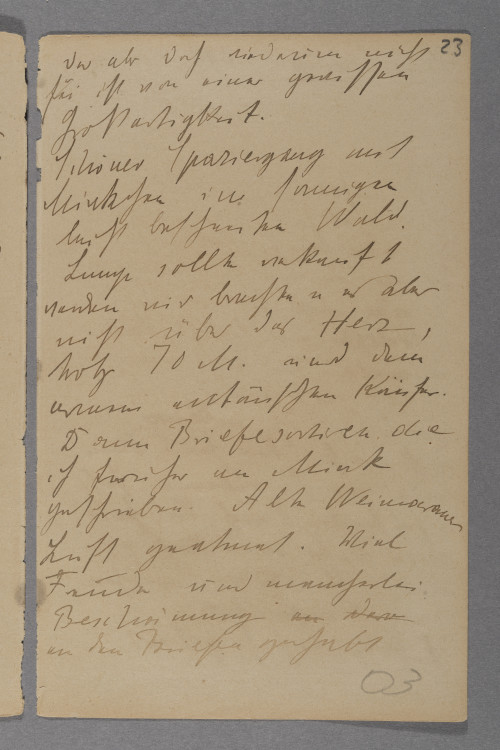 23
der aber darf wiederum nicht
ist von einer gewissen
Großartigkeit.
Schöner Spaziergang mit
im sonnigen
leicht beschneiten Wald.
sollte verkauft
werden wir brachten es aber
nicht über das Herz,
trotz 70 M. und dem
enttäuschten Käufer.
Dann Briefesortiren die
ich früher an
geschrieben. Alte Weimaraner
Luft geatmet. Viel
Freude und mancherlei
Beschämung an den
an den Briefen gehabt
03